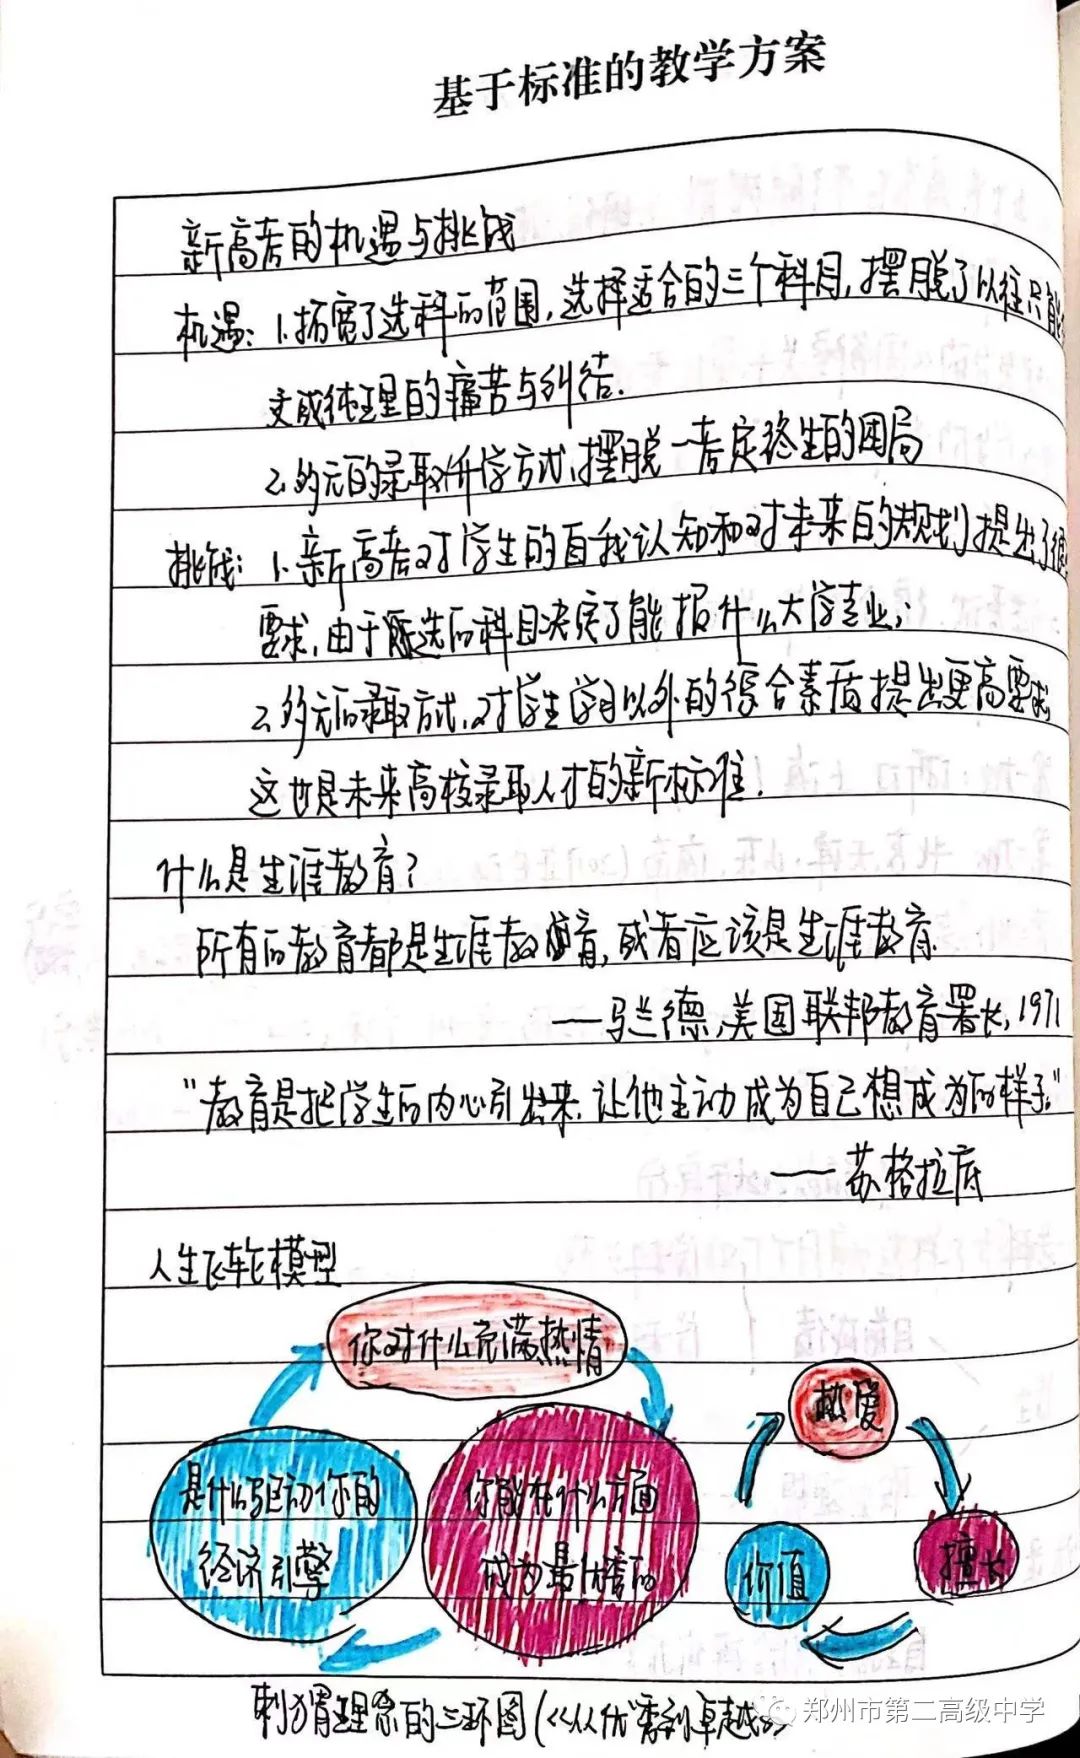 基于标准的教学方案
新高考的机遇与挑战
机遇: 1.拓宽了选科的范围,选择适合的三个科目,摆脱了以往只能
文或纯理的痛苦与纠结.
2.多元的录取升学方式,摆脱一考定终生的困局
挑战: 1.新高考对学生的自我认知和对未来的规划提出了很
要求,由于所选的科目决定了能报什么大学专业;
2.多元的录取方式,对学生学习以外的综合素质提出更高要求,
这也是未来高校录取人才的新标准!
什么是生涯教育?
所有的教育都是生涯教育,或者应该是生涯教育.
——马兰德,美国联邦教育署长,1971
"教育是把学生的内心引出来,让他主动成为自己想成为的样子"
——苏格拉底
人生飞轮模型
你对什么充满热情
热爱
是什么驱动你的
经济引擎
你能在什么方面
成为最优秀的
价值
擅长
刺猬理念的三环图(《从优秀到卓越》)
郑州市第二高级中学